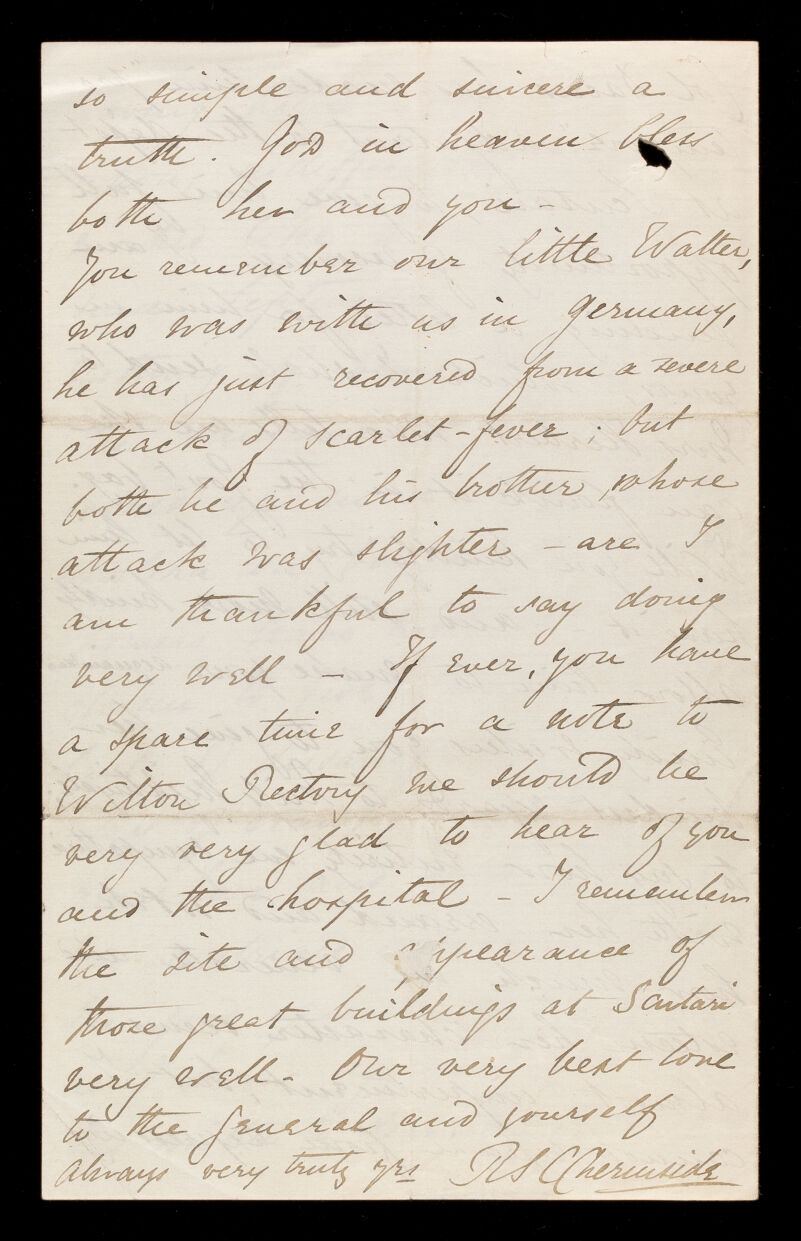 so simple and sincere a
truth. God in heaven bless
both her and you -
You remember our little Walter,
who was with us in Germany,
he has just recovered from a severe
attack of scarlet-fever; but
both he and his brother, whose
attack was slighter - are I
am thankful to say doing
very well - If ever, you have
a spare time for a note to
Wilton Rectory we should be
very very glad to hear of you
and the hospital - I remember
the site and appearance of
those great buildings at Scutari
very well - Our very best love
to the General and yourself
Always very truly yrs RS CChermside